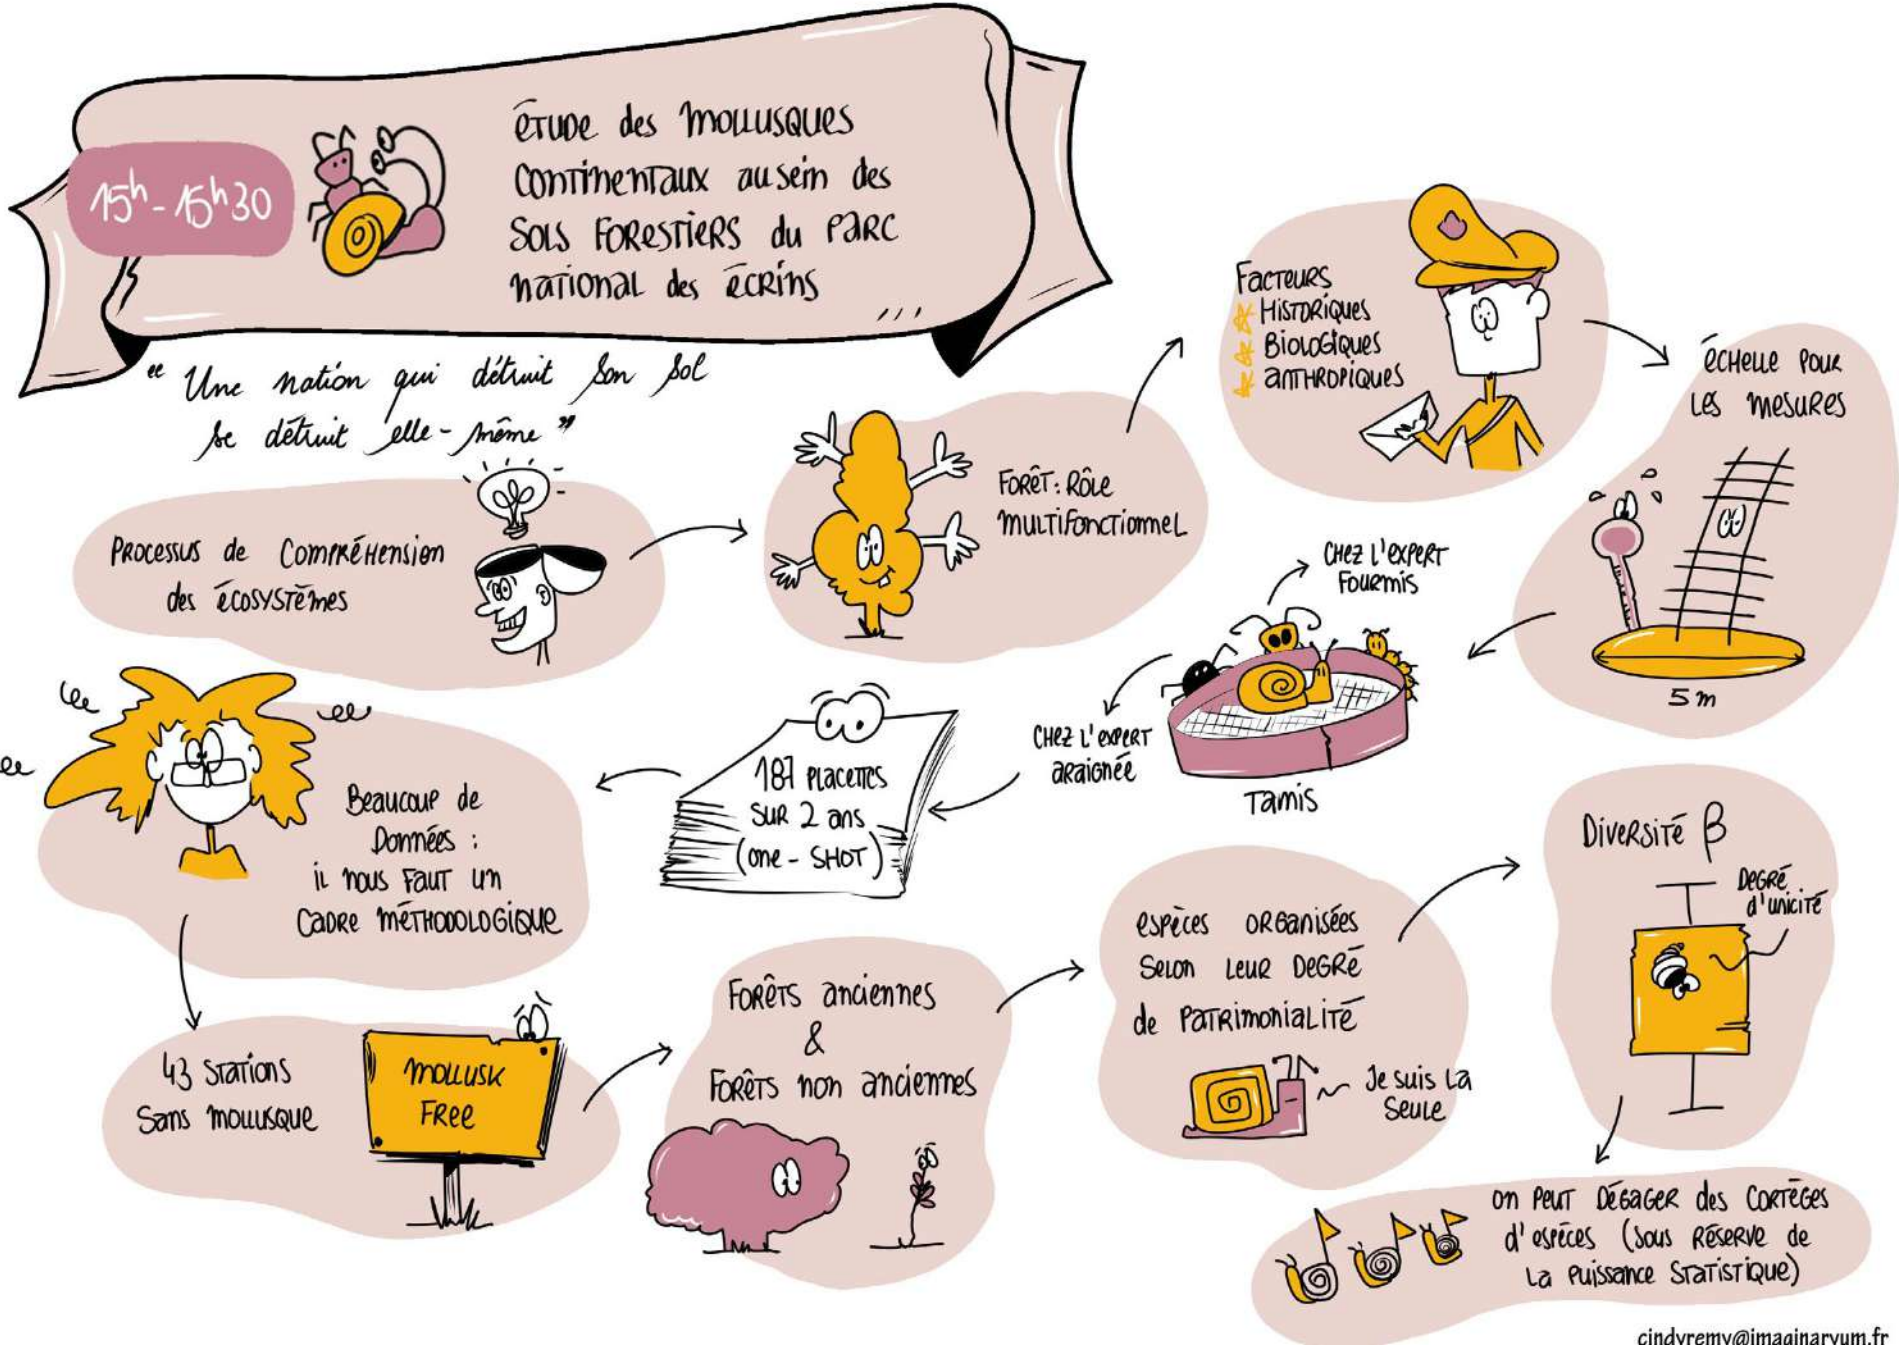 15h-15h30
étude des mollusques
continentaux au sein des
sols forestiers du parc
national des écrins
" Une nation qui détruit son sol
se détruit elle-même "
Processus de compréhension
des écosystèmes
Forêt : rôle
multifonctionnel
Facteurs
Historiques
Biologiques
anthropiques
échelle pour
les mesures
5 m
chez l'expert
fourmis
chez l'expert
araignée
Tamis
187 placettes
sur 2 ans
(one-shot)
Beaucoup de
Données :
il nous faut un
cadre méthodologique
43 stations
sans mollusque
mollusk
free
Forêts anciennes
&
Forêts non anciennes
espèces organisées
selon leur degré
de patrimonialité
Je suis la
seule
Diversité β
Degré
d'unicité
on peut dégager des cortèges
d'espèces (sous réserve de
la puissance statistique)
cindyremy@imaginaryum.fr